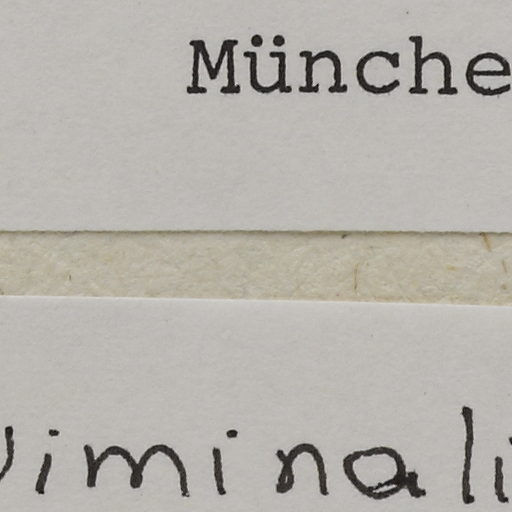 Münche
viminali